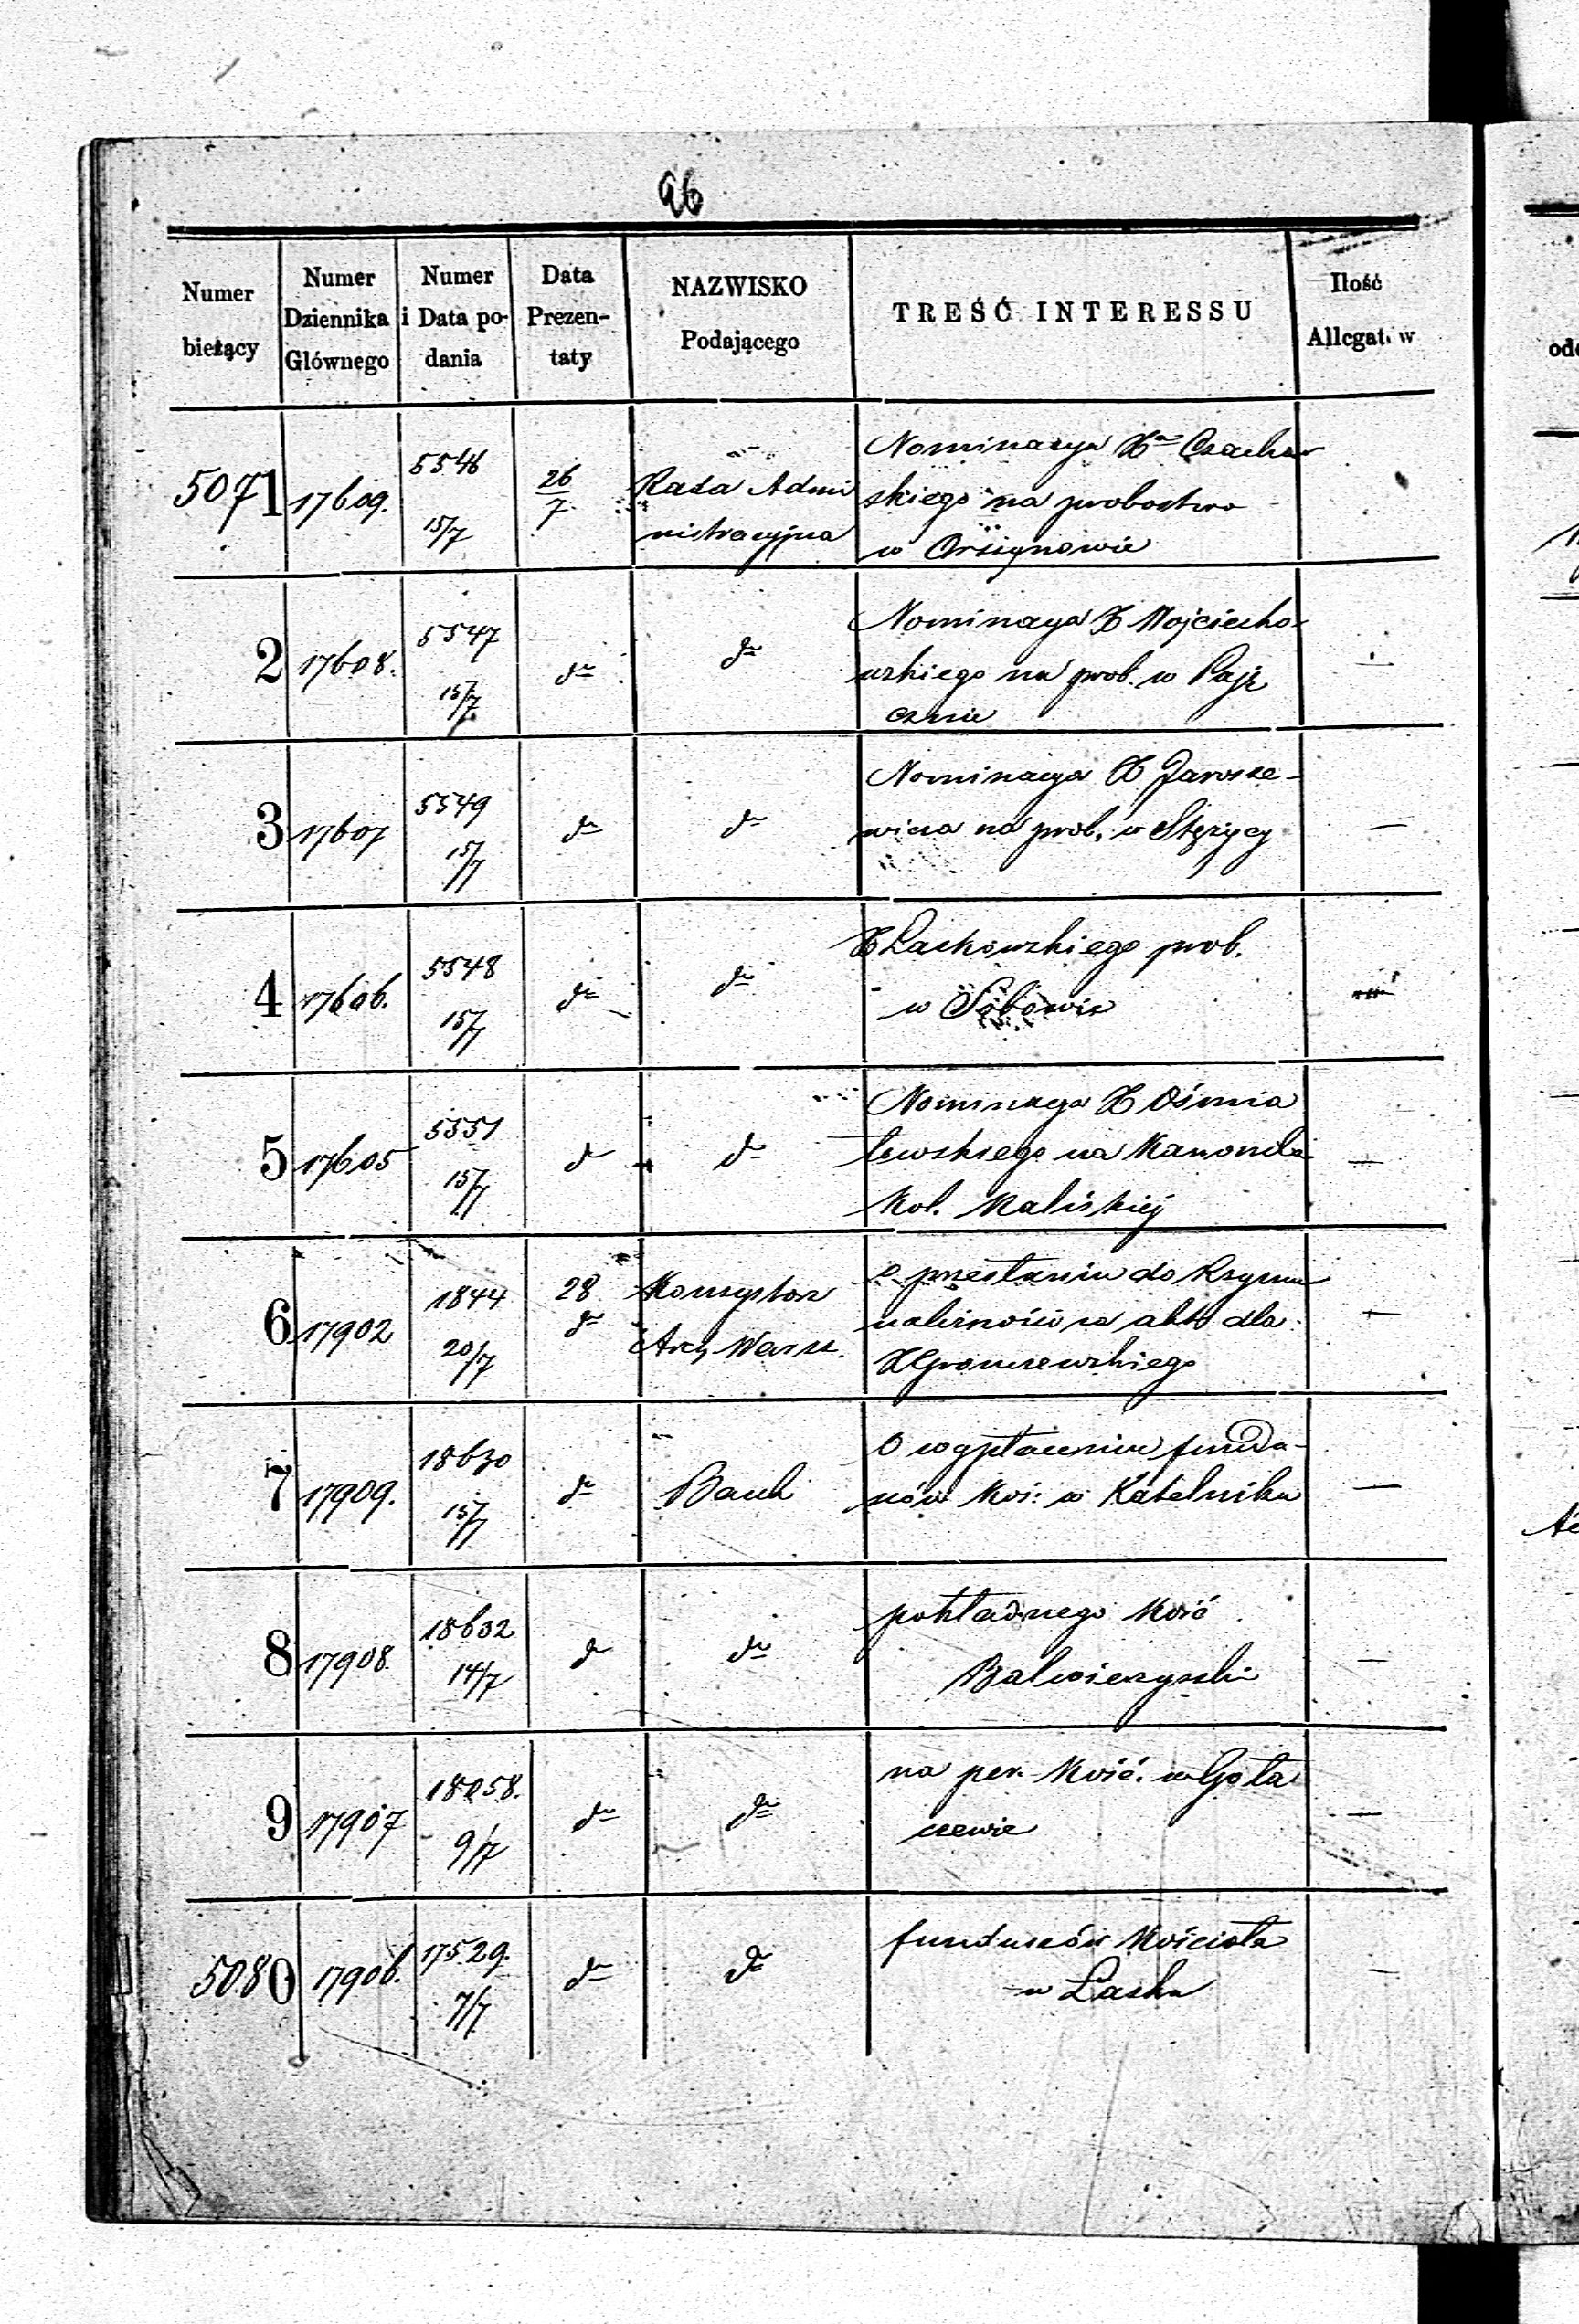 96
Numer bieżący
Numer Dziennika Głównego
Numer i Data podania
Data Prezentaty
NAZWISKO Podającego
TREŚĆ INTERESSU
Ilość Allegatów
5071 17609. 5546 15/7 26/7 Rada Admi
nistracyjna
Nominacya Xa Czachor
skiego na probostwo
w Orszymowie
2 17608. 5547 15/7 do do
Nominacya X Wojciecho-
wskiego na prob. w Paję
cznie
—
3 17607 5549 15/7 do do
Nominacya X Jarosze-
wicza na prob. w Stężycy
—
4 17606. 5548 15/7 do do
X Laskowskiego prob.
w Sobowie
5 17605 5551 15/7 do do
Nominacya X Ośmia
łowskiego na Kanonika
Kol. Kaliskiéj
—
6 17902 1844 20/7 28 do Konsystorz
Arch Warsz.
o przesłaniu do Rzymu
należności za akt dla
—
7 17909. 18630 15/7 do Bank
O wypłacenie fundu-
szów Koś: w Kobelniku
—
8 17908. 18632 14/7 do do
pokładnego Kość
Balwierzyszki
—
9 17907 18058. 9/7 do do
na per. Kość. w Goła
czewie
—
5080 17906. 17529. 7/7 do do
funduszów Kościoła
w Lasku
—